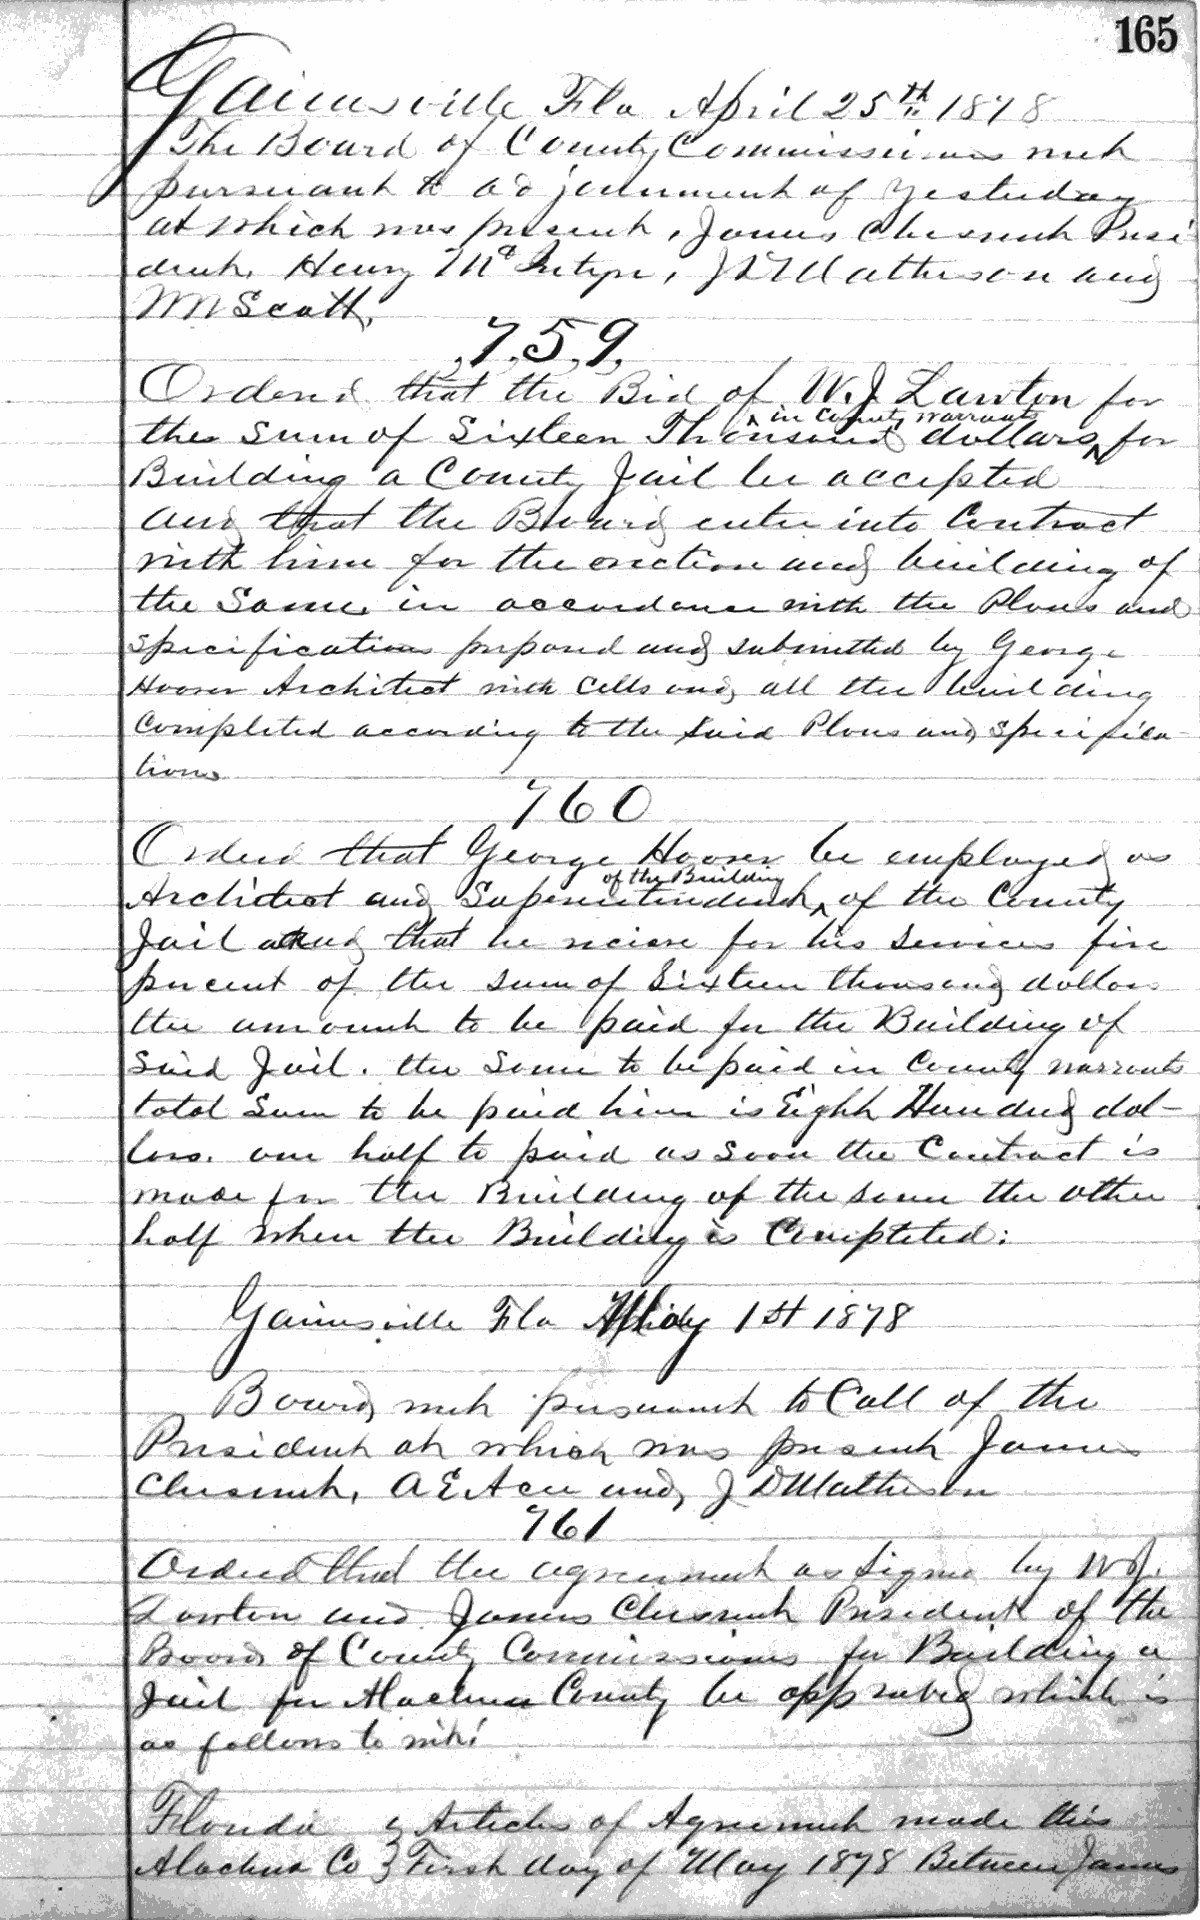 165
Gainesville Fla April 25th 1878
The Board of County Commissioners met
pursuant to adjournment of yesterday
at which was present, James Chesnut Presi
dent, Henry McIntyre, J D Matheson and
W N Scott,
,7,5,9,
Ordered that the Bid of W.J Lawton for
the sum of Sixteen Thousand dollars for
in County warrants
Building a County Jail be accepted
and that the Board enter into Contract
with him for the erection and building of
the Same, in accordance with the Plans and
specifications prepared and submitted by George
Hoover Architect with Cells and all the building
completed according to the said Plans and specifica-
tions
760
Ordered that George Hoover be employed as
of the Building
Architect and Superintendent of the County
Jail and that he recieve for his services five
percent of the sum of Sixteen thousand dollars
the amount to be paid for the Building of
said Jail. the same to be paid in County warrants
total sum to be paid him is Eight Hundred dol-
lars. one half to paid as soon the Contract is
made for the Building of the same the other
half when the Building is Completed:
Gainesville Fla May 1st 1878
Board met pursuant to Call of the
President at which was present James
Chesnut, A E A and J D Matheson
761
Ordered that the agreement as signed by W J.
Lawton and James Chesnut President of the
Board of County Commissioners for Building a
Jail for Alachua County be approved which is
as follows to wit:
Florida } Articles of Agreement made this
Alachua Co } First day of May 1878 Between James